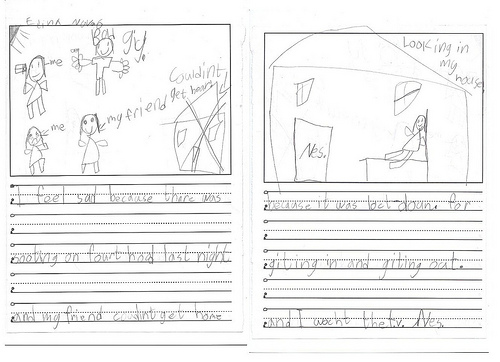 Bad gy.
me
Couldint get home
my friend
me
I feel sad because there was
hooting on fourt hood last night
and my friend couldint get home
Looking in my house
Nes.
because it was loct-down. for
gitting in and gitting out.
and I wocht the t.v. Nes.